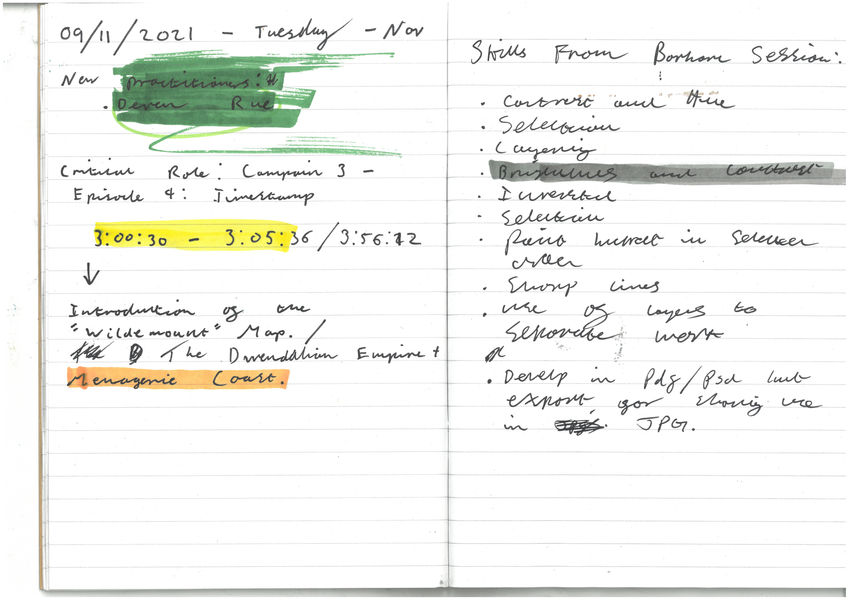 09/11/2021 - Tuesday - Nov
New Practitioners:
• Deven Rue
Critical Role: Campain 3 -
Episode 4: Timestamp
3:00:30 - 3:05:36 /3:56:12
↓
Introduction of the
"Wildemount" Map. /
The Dwendalian Empire +
Menagerie Coast.
Skills From Session:
• Contrast and Hue
• Selection
• Layering
• Brightness and contrast
• Inverted
• Selection
• Paint in
• Sharp lines
• use of layers to
separate work
• Develp in Pdf/psd but
export for use
in JPG.